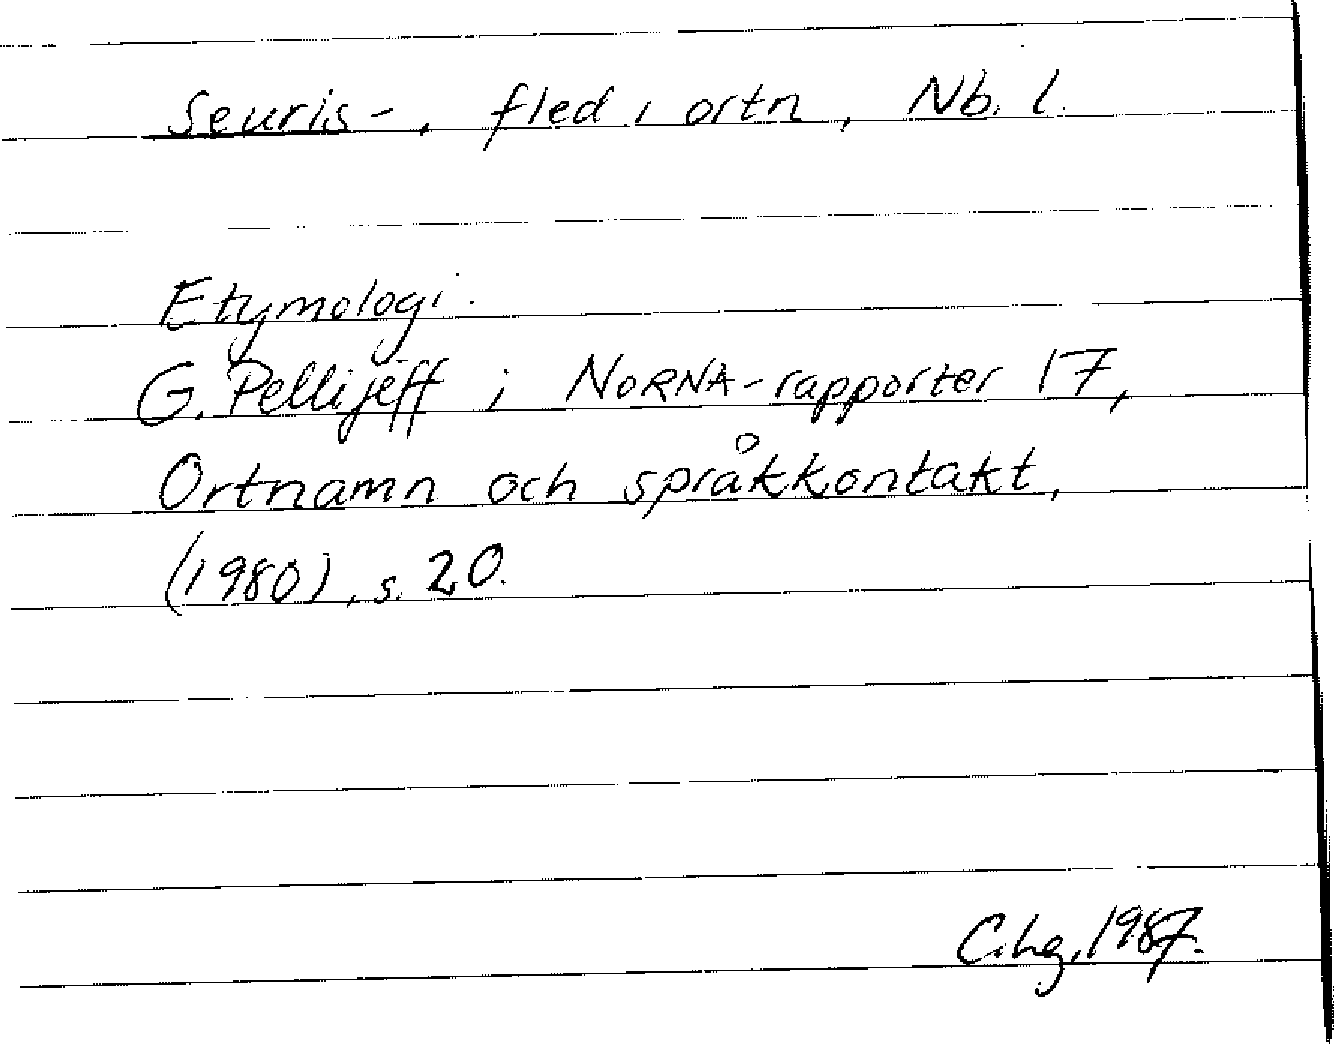 Seuris-, fled i ortn, Nb. l.
Etymologi.
G. Pellijeff i NORNA-rapporter 17,
Ortnamn och språkkontakt,
(1980), s. 20.
C.hg, 1987.